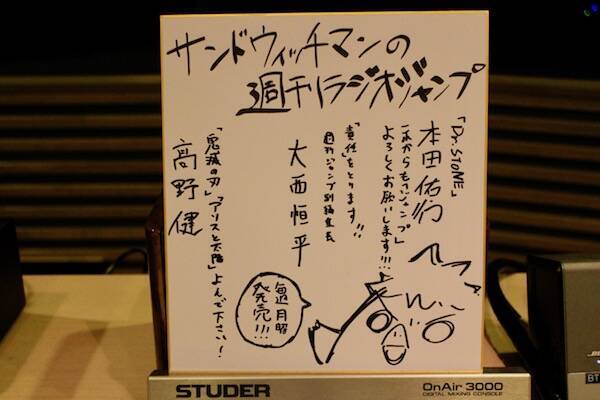 サンドウィッチマンの
週刊ラジオジャンプ
「Dr.STONE」
本田佑行
これからも「ジャンプ」
よろしくお願いします!!!
「責任」をとります!!
週刊ジャンプ副編集長
大西恒平
「鬼滅の刃」「アリスと太陽」よんで下さい!
高野健
毎週月曜
発売!!!
STUDER
OnAir 3000
DIGITAL MIXING CONSOLE
BOSE
BT